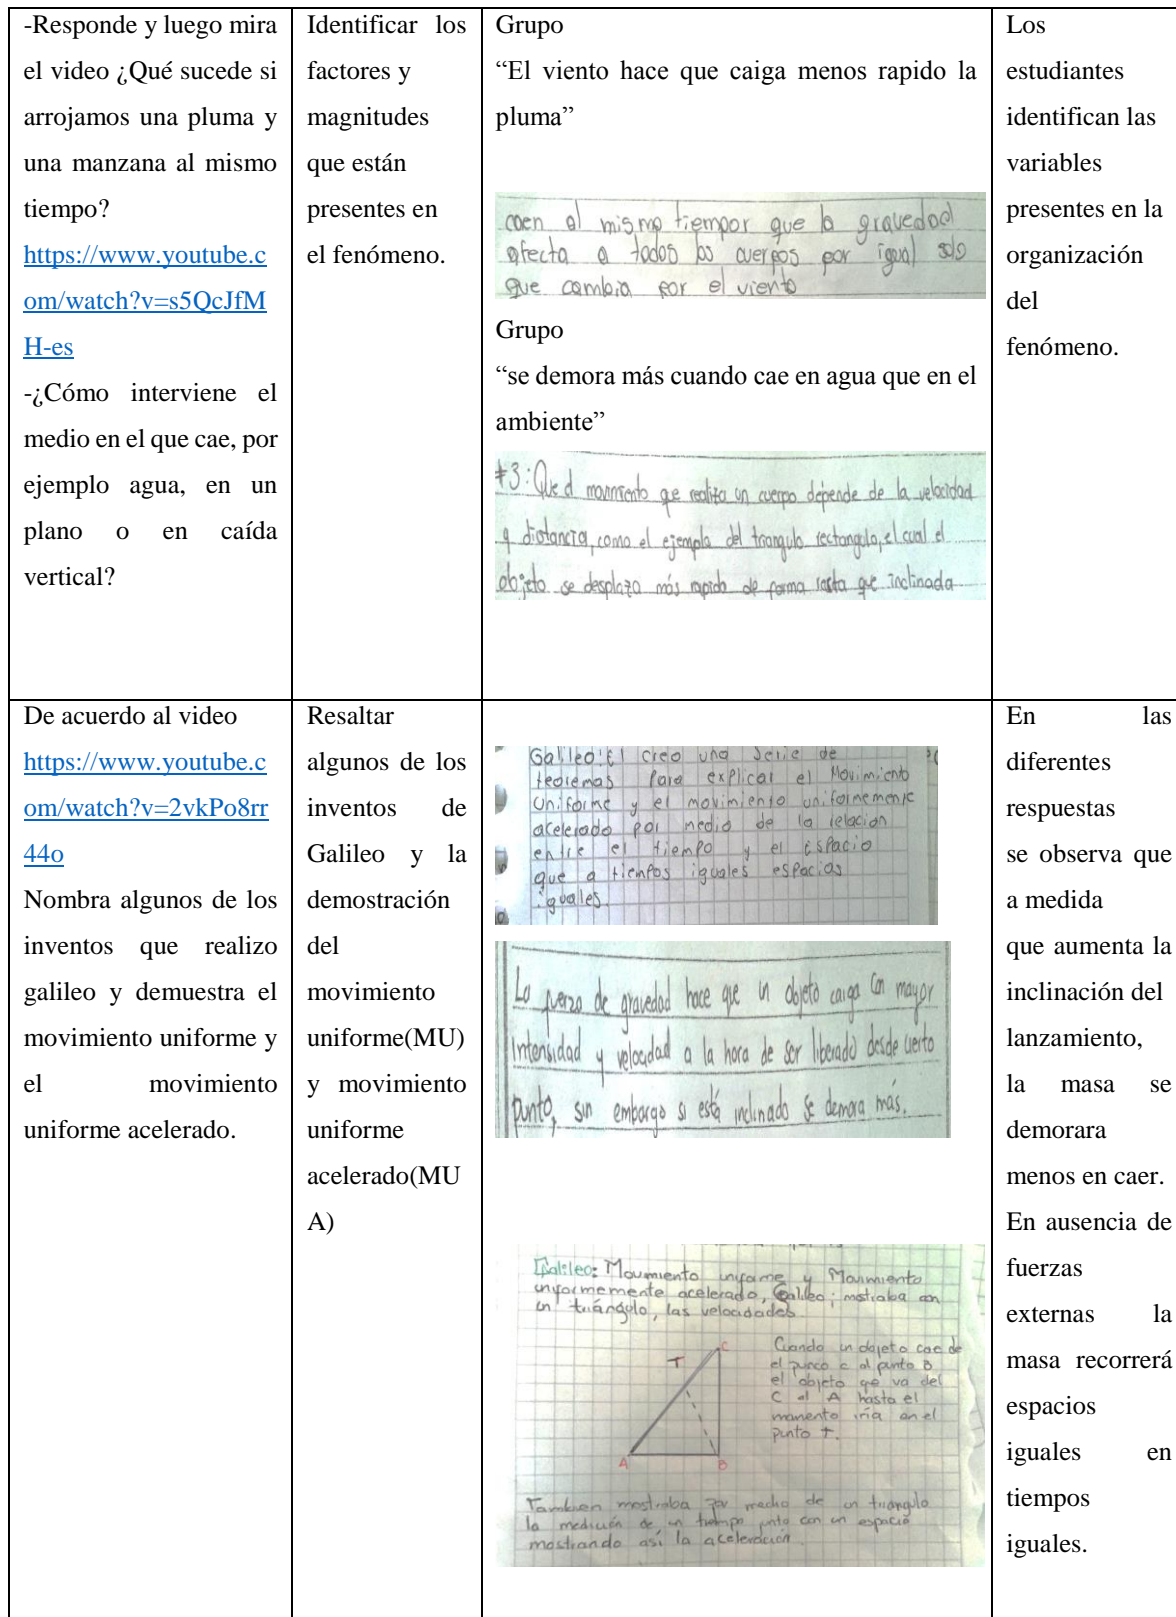 -Responde y luego mira
el video ¿Qué sucede si
arrojamos una pluma y
una manzana al mismo
tiempo?
https://www.youtube.c
om/watch?v=s5QcJfM
H-es
-¿Cómo interviene el
medio en el que cae, por
ejemplo agua, en un
plano o en caída
vertical?
Identificar los
factores y
magnitudes
que están
presentes en
el fenómeno.
Grupo
“El viento hace que caiga menos rapido la
pluma”
caen al mismo tiempor que la gravedad
afecta a todos los cuerpos por igual solo
que cambia por el viento
Grupo
“se demora más cuando cae en agua que en el
ambiente”
#3: Que el movimiento que realiza un cuerpo depende de la velocidad
y distancia, como el ejemplo del triangulo rectangulo, el cual el
objeto se desplaza más rapido de forma recta que inclinada
Los
estudiantes
identifican las
variables
presentes en la
organización
del
fenómeno.
De acuerdo al video
https://www.youtube.c
om/watch?v=2vkPo8rr
44o
Nombra algunos de los
inventos que realizo
galileo y demuestra el
movimiento uniforme y
el movimiento
uniforme acelerado.
Resaltar
algunos de los
inventos de
Galileo y la
demostración
del
movimiento
uniforme(MU)
y movimiento
uniforme
acelerado(MU
A)
Galileo: El creo una serie de
teoremas para explicar el Movimiento
Uniforme y el movimiento uniformemente
acelerado por medio de la relacion
entre el tiempo y el espacio
que a tiempos iguales espacios
iguales.
La fuerza de gravedad hace que un objeto caiga con mayor
intensidad y velocidad a la hora de ser liberado desde cierto
punto, sin embargo si está inclinado se demora más.
Galileo: Movimiento uniforme y Movimiento
uniformemente acelerado, Galileo; mostraba con
un triángulo, las velocidades.
C
T
A
B
Cuando un objeto cae de
el punco c al punto B
el objeto que va del
C al A hasta el
momento iría en el
punto T.
Tambien mostraba por medio de un triangulo
la medición de un tiempo junto con un espacio
mostrando así la aceleración.
En las
diferentes
respuestas
se observa que
a medida
que aumenta la
inclinación del
lanzamiento,
la masa se
demorara
menos en caer.
En ausencia de
fuerzas
externas la
masa recorrerá
espacios
iguales en
tiempos
iguales.